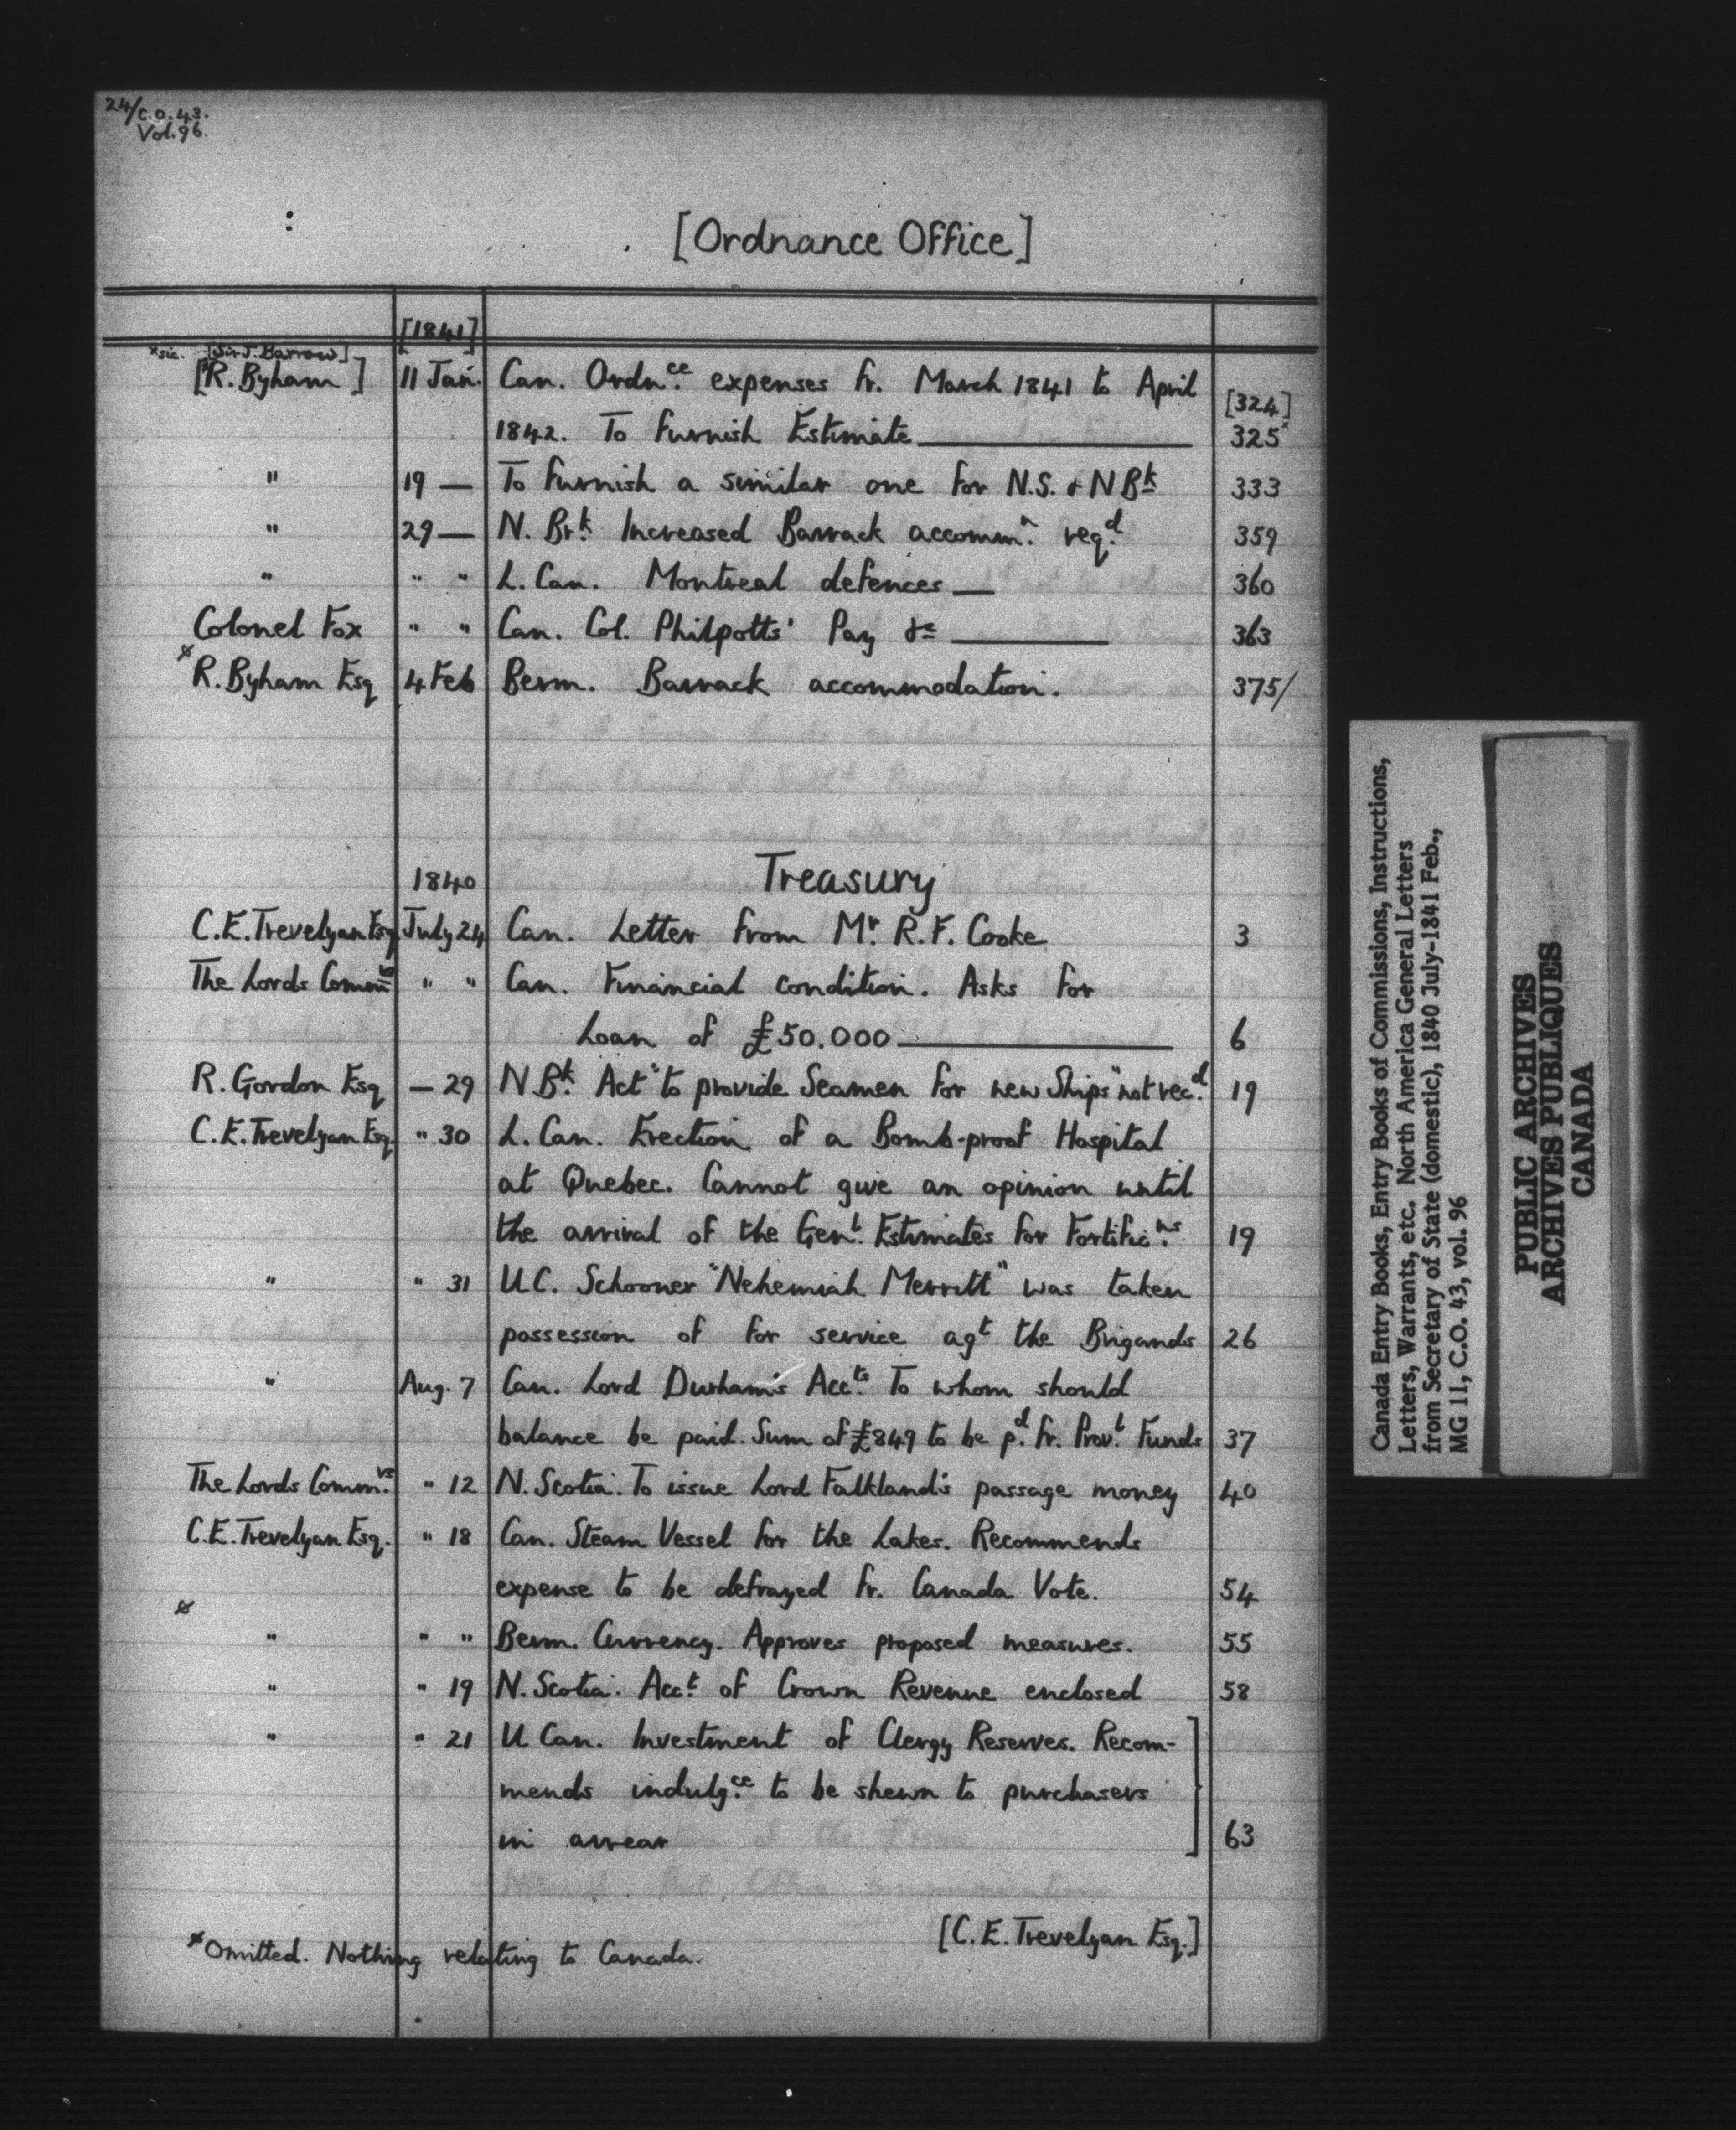 24/C.O.43.
Vol.96.
[Ordnance Office]
[1841]
xsic. [Sir J. Barrow]
[R. Byham] 11 Jan. Can. Ordnce. expenses fr. March 1841 to April [324]
1842. To furnish Estimate 325x
" 19 — To furnish a similar one for N.S. & N Bk 333
" 29 — N. Brk. Increased Barrack accommn. reqd. 359
" " " L. Can. Montreal defences — 360
Colonel Fox " " Can. Col. Philpotts' Pay &c 363
x R. Byham Esq 4 Feb Berm. Barrack accommodation. 375/
1840 Treasury
C.E. Trevelyan Esq. July 24 Can. Letter from Mr. R.F. Cooke 3
The Lords Commrs " " Can. Financial condition. Asks for
Loan of £50.000 6
R. Gordon Esq — 29 N Bk. Act "to provide Seamen for new Ships" not recd. 19
C.E. Trevelyan Esq. " 30 L. Can. Erection of a Bomb-proof Hospital
at Quebec. Cannot give an opinion until
the arrival of the Genl. Estimates for Fortificns. 19
" " 31 U.C. Schooner "Nehemiah Merritt" was taken
possession of for service agt the Brigands 26
" Aug. 7 Can. Lord Durham's Accts. To whom should
balance be paid. Sum of £849 to be pd. fr. Provl. Funds 37
The Lords Commrs. " 12 N. Scotia. To issue Lord Falkland's passage money 40
C.E. Trevelyan Esq. " 18 Can. Steam Vessel for the Lakes. Recommends
expense to be defrayed fr. Canada Vote. 54
x " " " Berm. Currency. Approves proposed measures. 55
" " 19 N. Scotia. Acct. of Crown Revenue enclosed 58
" " 21 U Can. Investment of Clergy Reserves. Recom-
mends indulgce. to be shewn to purchasers
in arrear 63
[C.E. Trevelyan Esq.]
x Omitted. Nothing relating to Canada.
Canada Entry Books, Entry Books of Commissions, Instructions,
Letters, Warrants, etc. North America General Letters
from Secretary of State (domestic), 1840 July-1841 Feb.,
MG 11, C.O. 43, vol. 96
PUBLIC ARCHIVES
ARCHIVES PUBLIQUES
CANADA